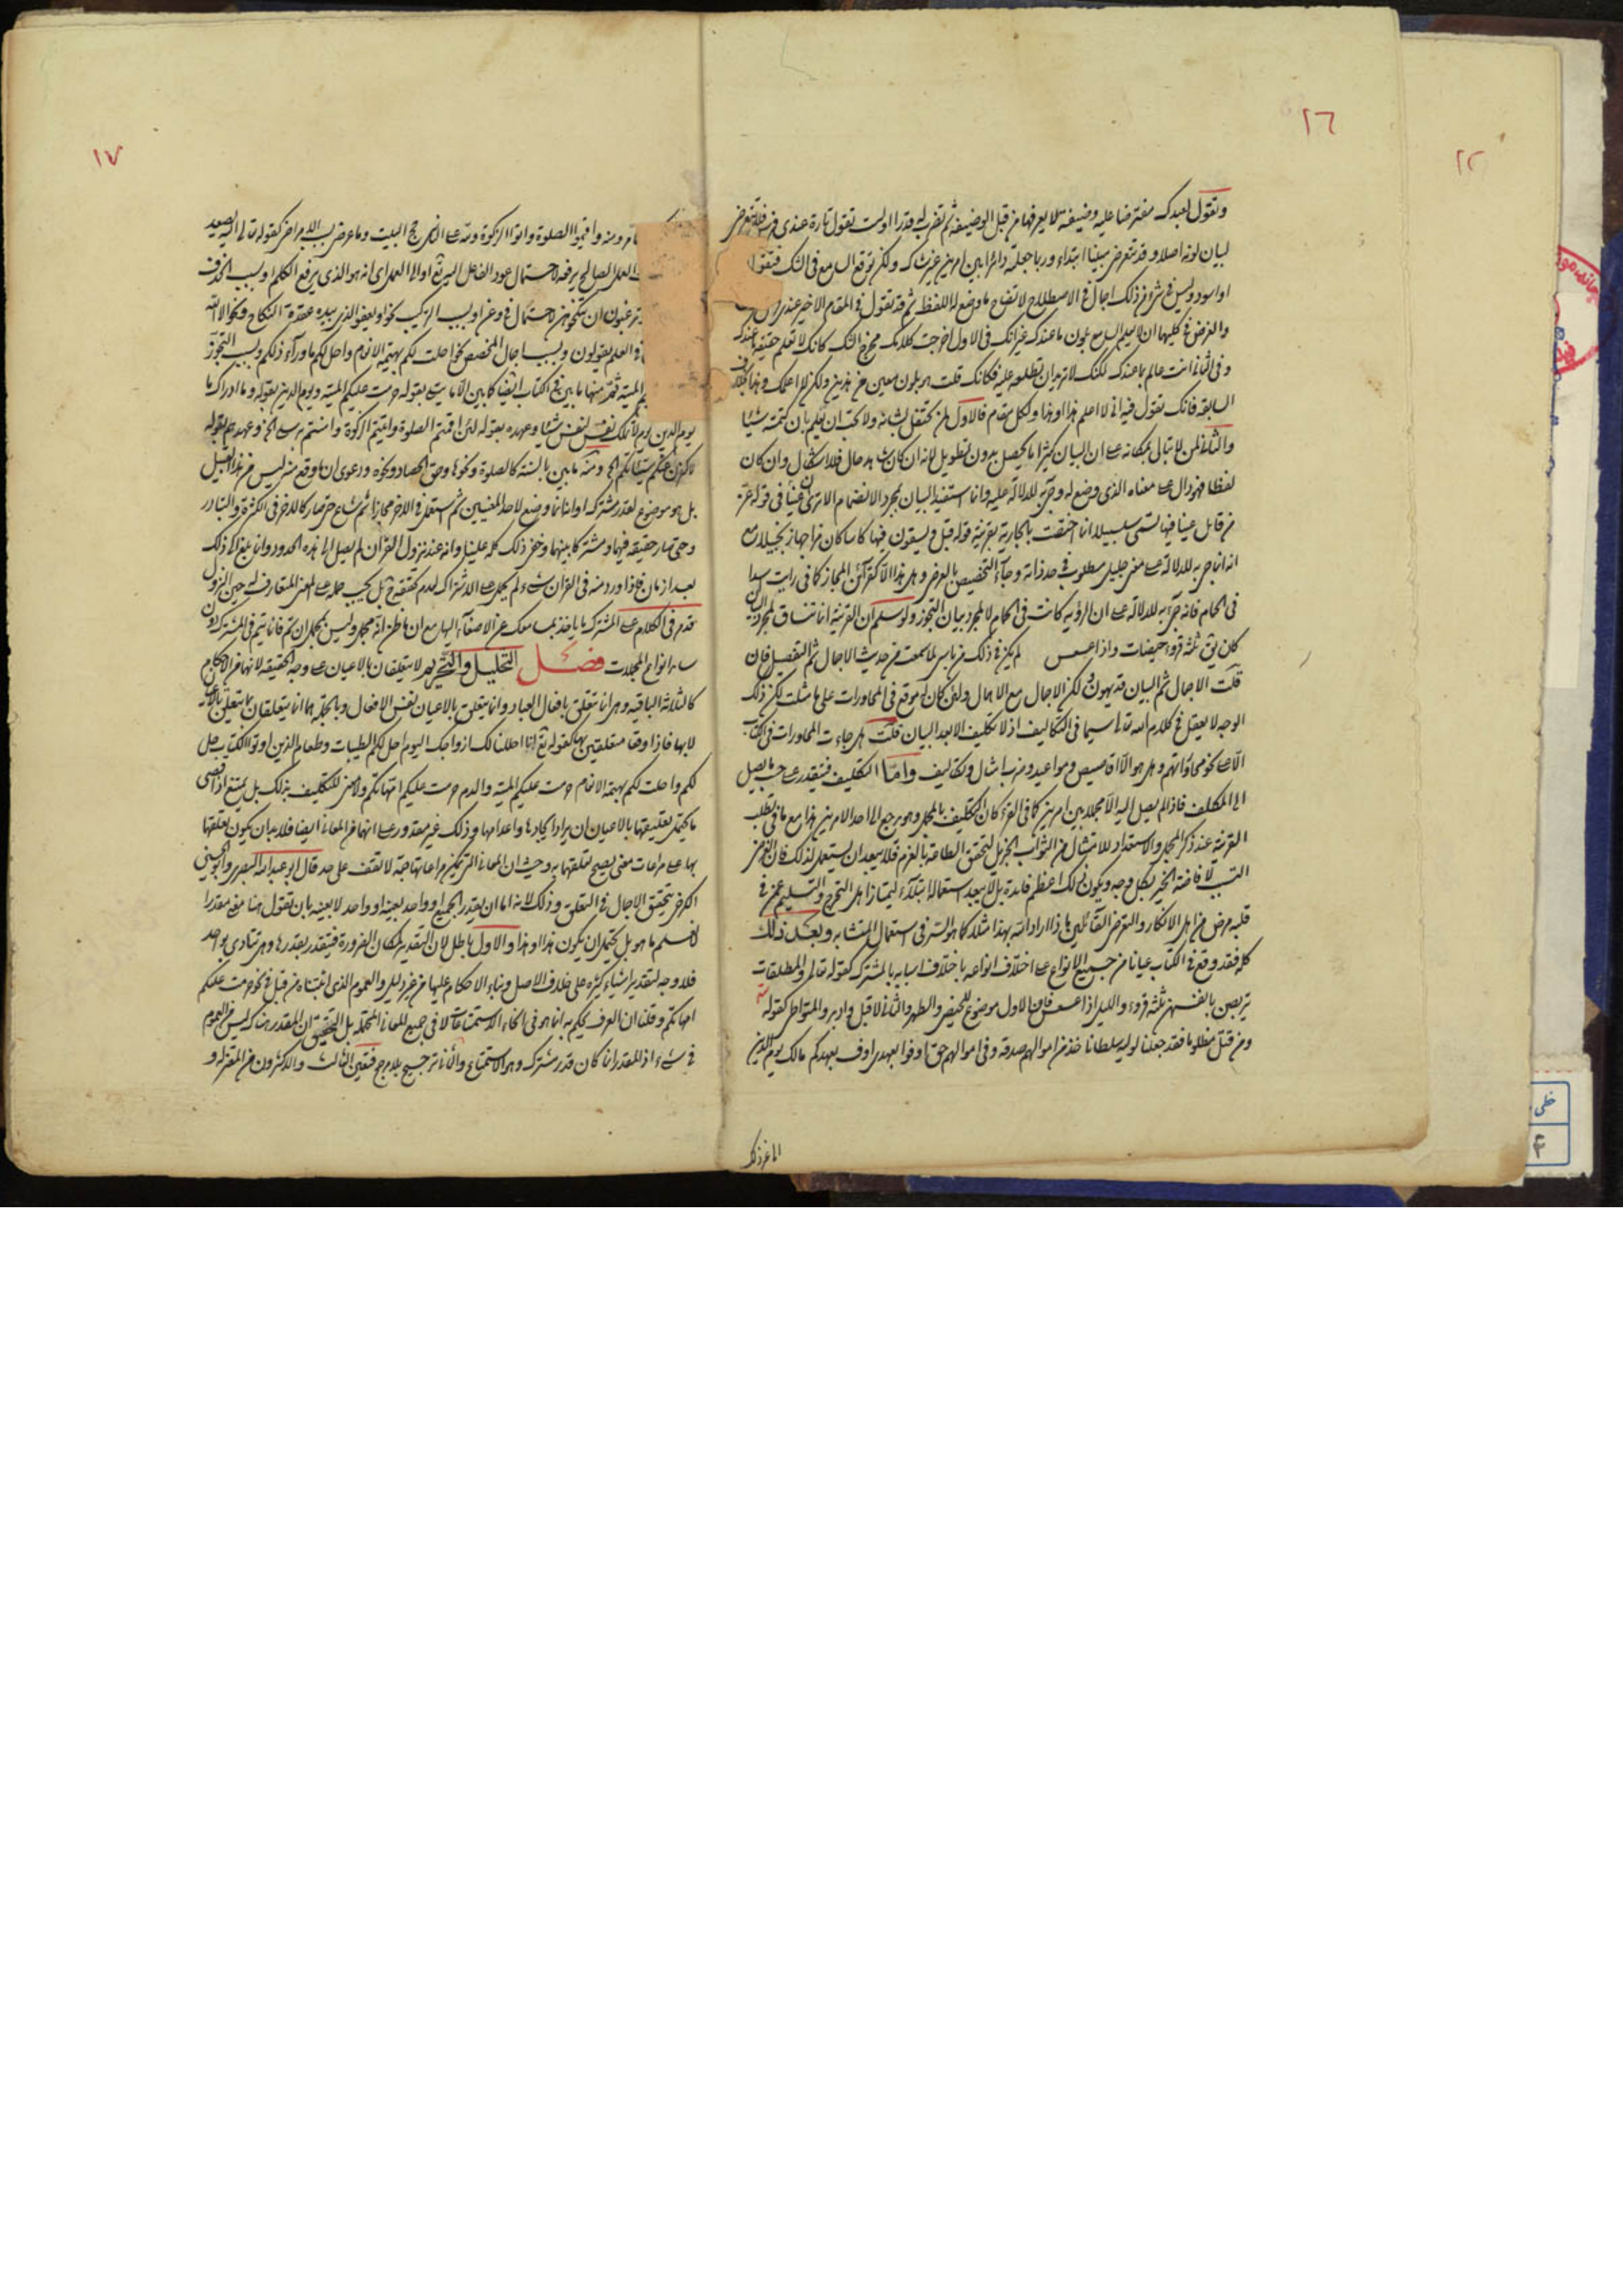 ١٦
وتقول لعبدك مفترضا عليه وضيفة لا يعرفها من قبل الوضيفة ثم تضرب له قدرا اولست تقول تارة عندى فرس فلا تتعرض
لبيان لونه اصلا وقد تتعرض مبينا ابتداء وربما جعلته دائرا بين امرين غير شاك ولكن توقع السامع فى الشك فتقول
او اسود وليس فى شئ من ذلك اجمال فى الاصطلاح لاتضاح ما وضع له اللفظ ثم قد تقول فى المقام الاخير عندى
والغرض فى كليهما ان لا يعلم السامع بلون ما عندك غير انك فى الاول اخرجت كلامك مخرج الشك كانك لا تعلم حقيقة ما عندك
وفى الثانى انت عالم بما عندك لكنك لا تريد ان تطلعه عليه فكانك قلت هو بلون معين من هذين ولكن لا اعلمك وهذا بخلاف
السابقة فانك تقول فيه انى لا اعلم هذا او هذا ولكل مقام فالاول لمن تحتفل بشانه ولا تحب ان يعلم بان كتمته شيئا
والثانى لمن لا تبالى بمكانه على ان البيان كثيرا ما يحصل بدون تطويل لانه ان كان شاهد حال فلا اشكال وان كان
لفظا فهو دال على معناه الذى وضع له وجئ به للدلالة عليه وانما استفيد البيان بمجرد الانضمام الا ترى ان عينا فى قوله عز
من قائل عينا فيها تسمى سلسبيلا انما اختصت بالجارية بقرينة قوله قبل ويسقون فيها كاسا كان مزاجها زنجبيلا مع
انه انما جئ به للدلالة على معنى جليل مطلوب فى حد ذاته وجاء التخصيص بالعرض وهل هذا الا كقرائن المجاز كما فى رايت اسدا
فى الحمام فانه جئ به للدلالة على ان الرؤية كانت فى الحمام لا لمجرد بيان التجوز ولو سلم ان القرينة انما تساق لمجرد البيان
كان يق ثلثة قروء حيضات واذا عسعس لم يكن فى ذلك من باس لما سمعت من حديث الاجمال ثم التفصيل فان
قلت الاجمال ثم البيان قد يهون ولكن الاجمال مع الاهمال ولئن كان له موقع فى المحاورات على ما مثلت لكن ذلك
الوجه لا يعقل فى كلام الله تعالى سيما فى التكاليف اذ لا تكليف الا بعد البيان قلت هل جاءت المحاورات فى الكتاب
الا على نحو محاوراتهم وهل هو الا اقاصيص ومواعيد وضرب امثال وتكاليف واما التكليف فيتقدر على حسب ما يصل
الى المكلف فاذا لم يصل اليه الا مجملا بين امرين كما فى القرء كان التكليف بالمجمل وهو يرجع الى احد الامرين هذا مع ما فى تطلب
القرينة عند ذكر المجمل والاستعداد للامتثال من الثواب الجزيل لتحقق الطاعة بالعزم فلا يبعد ان يستعمل لذلك فان الغرض
التسبب لافاضة الخير بكل وجه ويكون ذلك اعظم فايدة بل لا يبعد استعماله ابتلاء ليمتاز اهل التحرج والتسليم عمن فى
قلبه مرض من اهل الانكار والتعرض القائلين ماذا اراد الله بهذا مثلا كما هو السر فى استعمال المتشابه وبعد ذلك
كله فقد وقع فى الكتاب عيانا من جميع الانواع على اختلاف انواعه باختلاف اسبابه بالمشترك كقوله تعالى والمطلقات
يتربصن بانفسهن ثلثة قروء والليل اذا عسعس فان الاول موضوع للحيض والطهر والثانى لاقبل وادبر والمتواطى كقوله
ومن قتل مظلوما فقد جعلنا لوليه سلطانا خذ من اموالهم صدقة وفى اموالهم حق اوفوا بعهدى اوف بعهدكم مالك يوم الدين
الى غير ذلك
١٧
ومنه واقيموا الصلوة واتوا الزكوة ولله على الناس حج البيت وما عرض بسبب الابهام كقوله تعالى اليه يصعد
العمل الصالح يرفعه لاحتمال عود الفاعل اليه تع او الى العمل اى انه هو الذى يرفع الكلم او بسبب الحذف
وترغبون ان تنكحوهن لاحتمال فى وعن او بسبب التركيب نحو او يعفو الذى بيده عقدة النكاح ونحو الا الله
فى العلم يقولون وبسبب اجمال المخصص نحو احلت لكم بهيمة الانعام واحل لكم ما وراء ذلكم وبسبب التجوز
الميتة ثم منها ما بين فى الكتاب ايضا كما بين الا ما يتلى بقوله حرمت عليكم الميتة ويوم الدين بقوله وما ادراك ما
يوم الدين يوم لا تملك نفس لنفس شيئا وعهده بقوله لئن اقمتم الصلوة واتيتم الزكوة وامنتم برسلى الخ وعهدهم بقوله
لاكفرن عنكم سيئاتكم الخ ومنه ما بين بالسنة كالصلوة ونحوها وحق الحصاد ونحوه ودعوى ان ما وقع منه ليس من هذا القبيل
بل هو موضوع لقدر مشترك او انه انما وضع لاحد المعنيين ثم استعمل فى الاخر مجازا ثم شاع حتى صار كالاخر فى الكثرة والتبادر
وحتى صار حقيقة فيها ومشتركا بينهما وخفى ذلك كله علينا وانه عند نزول القران لم يصل الى هذه الحدود وانما بلغ الى ذلك
بعد ازمان فاذا ورد منه فى القران شئ لم يحمل على الاشتراك لعدم تحققه ح بل يجب حمله على المعنى المتعارف له حين النزول
قدم فى الكلام على المشترك ما ياخذ بمسامعك عن الاصغاء اليها مع ان ما ظن انه مجمل وليس بمجمل ان تم فانما يتم فى المشترك دون
سائر انواع المجملات فصل التحليل والتحريم لا يتعلقان بالاعيان على وجه الحقيقة لانهما من الاحكام
كالثلاثة الباقية وهى انما تتعلق بافعال العباد وانما يتعلق بالاعيان نفس الافعال وبالجملة هما انما يتعلقان بما يتعلق بالاعيان
لا بها فاذا وقعا متعلقين بها كقوله تع انا احللنا لك ازواجك اليوم احل لكم الطيبات وطعام الذين اوتوا الكتاب حل
لكم واحلت لكم بهيمة الانعام حرمت عليكم الميتة والدم حرمت عليكم امهاتكم ولا معنى للتكليف بذلك بل يمتنع اذ اقصى
ما يحتمل تعليقها بالاعيان ان يراد ايجادها واعدامها وذلك غير مقدور على انهما من المعانى ايضا فلا بد ان يكون تعلقها
بها على مراعات معنى يصح تعلقهما به وحيث ان المعانى التى يمكن مراعاتها جمة لا تقف على حد قال ابو عبد الله البصرى وابو الحسن
الكرخى بتحقق الاجمال فى التعلق وذلك لانه اما ان يقدر الجميع او واحد بعينه او واحد لا بعينه بان تقول هنا معنى مقدرا
لا نعلم ما هو بل يحتمل ان يكون هذا او هذا والاول باطل لان التقدير لمكان الضرورة فيتقدر بقدرها وهى تتادى بواحد
فلا وجه لتقدير اشياء كثيرة على خلاف الاصل وبناء الاحكام عليها من غير دليل والعموم الذى اثبتناه من قبل فى نحو حرمت عليكم
امهاتكم وقلنا ان العرف يحكم به انما هو فى انحاء الاستمتاعات لا فى جميع المعانى المحتملة بل التحقيق ان المقدر هناك ليس من العموم
فى شئ اذ المقدر انما كان قدر مشترك وهو الاستمتاع والثانى ترجيح بلا مرجح فتعين الثالث والاكثرون من المعتزلة و